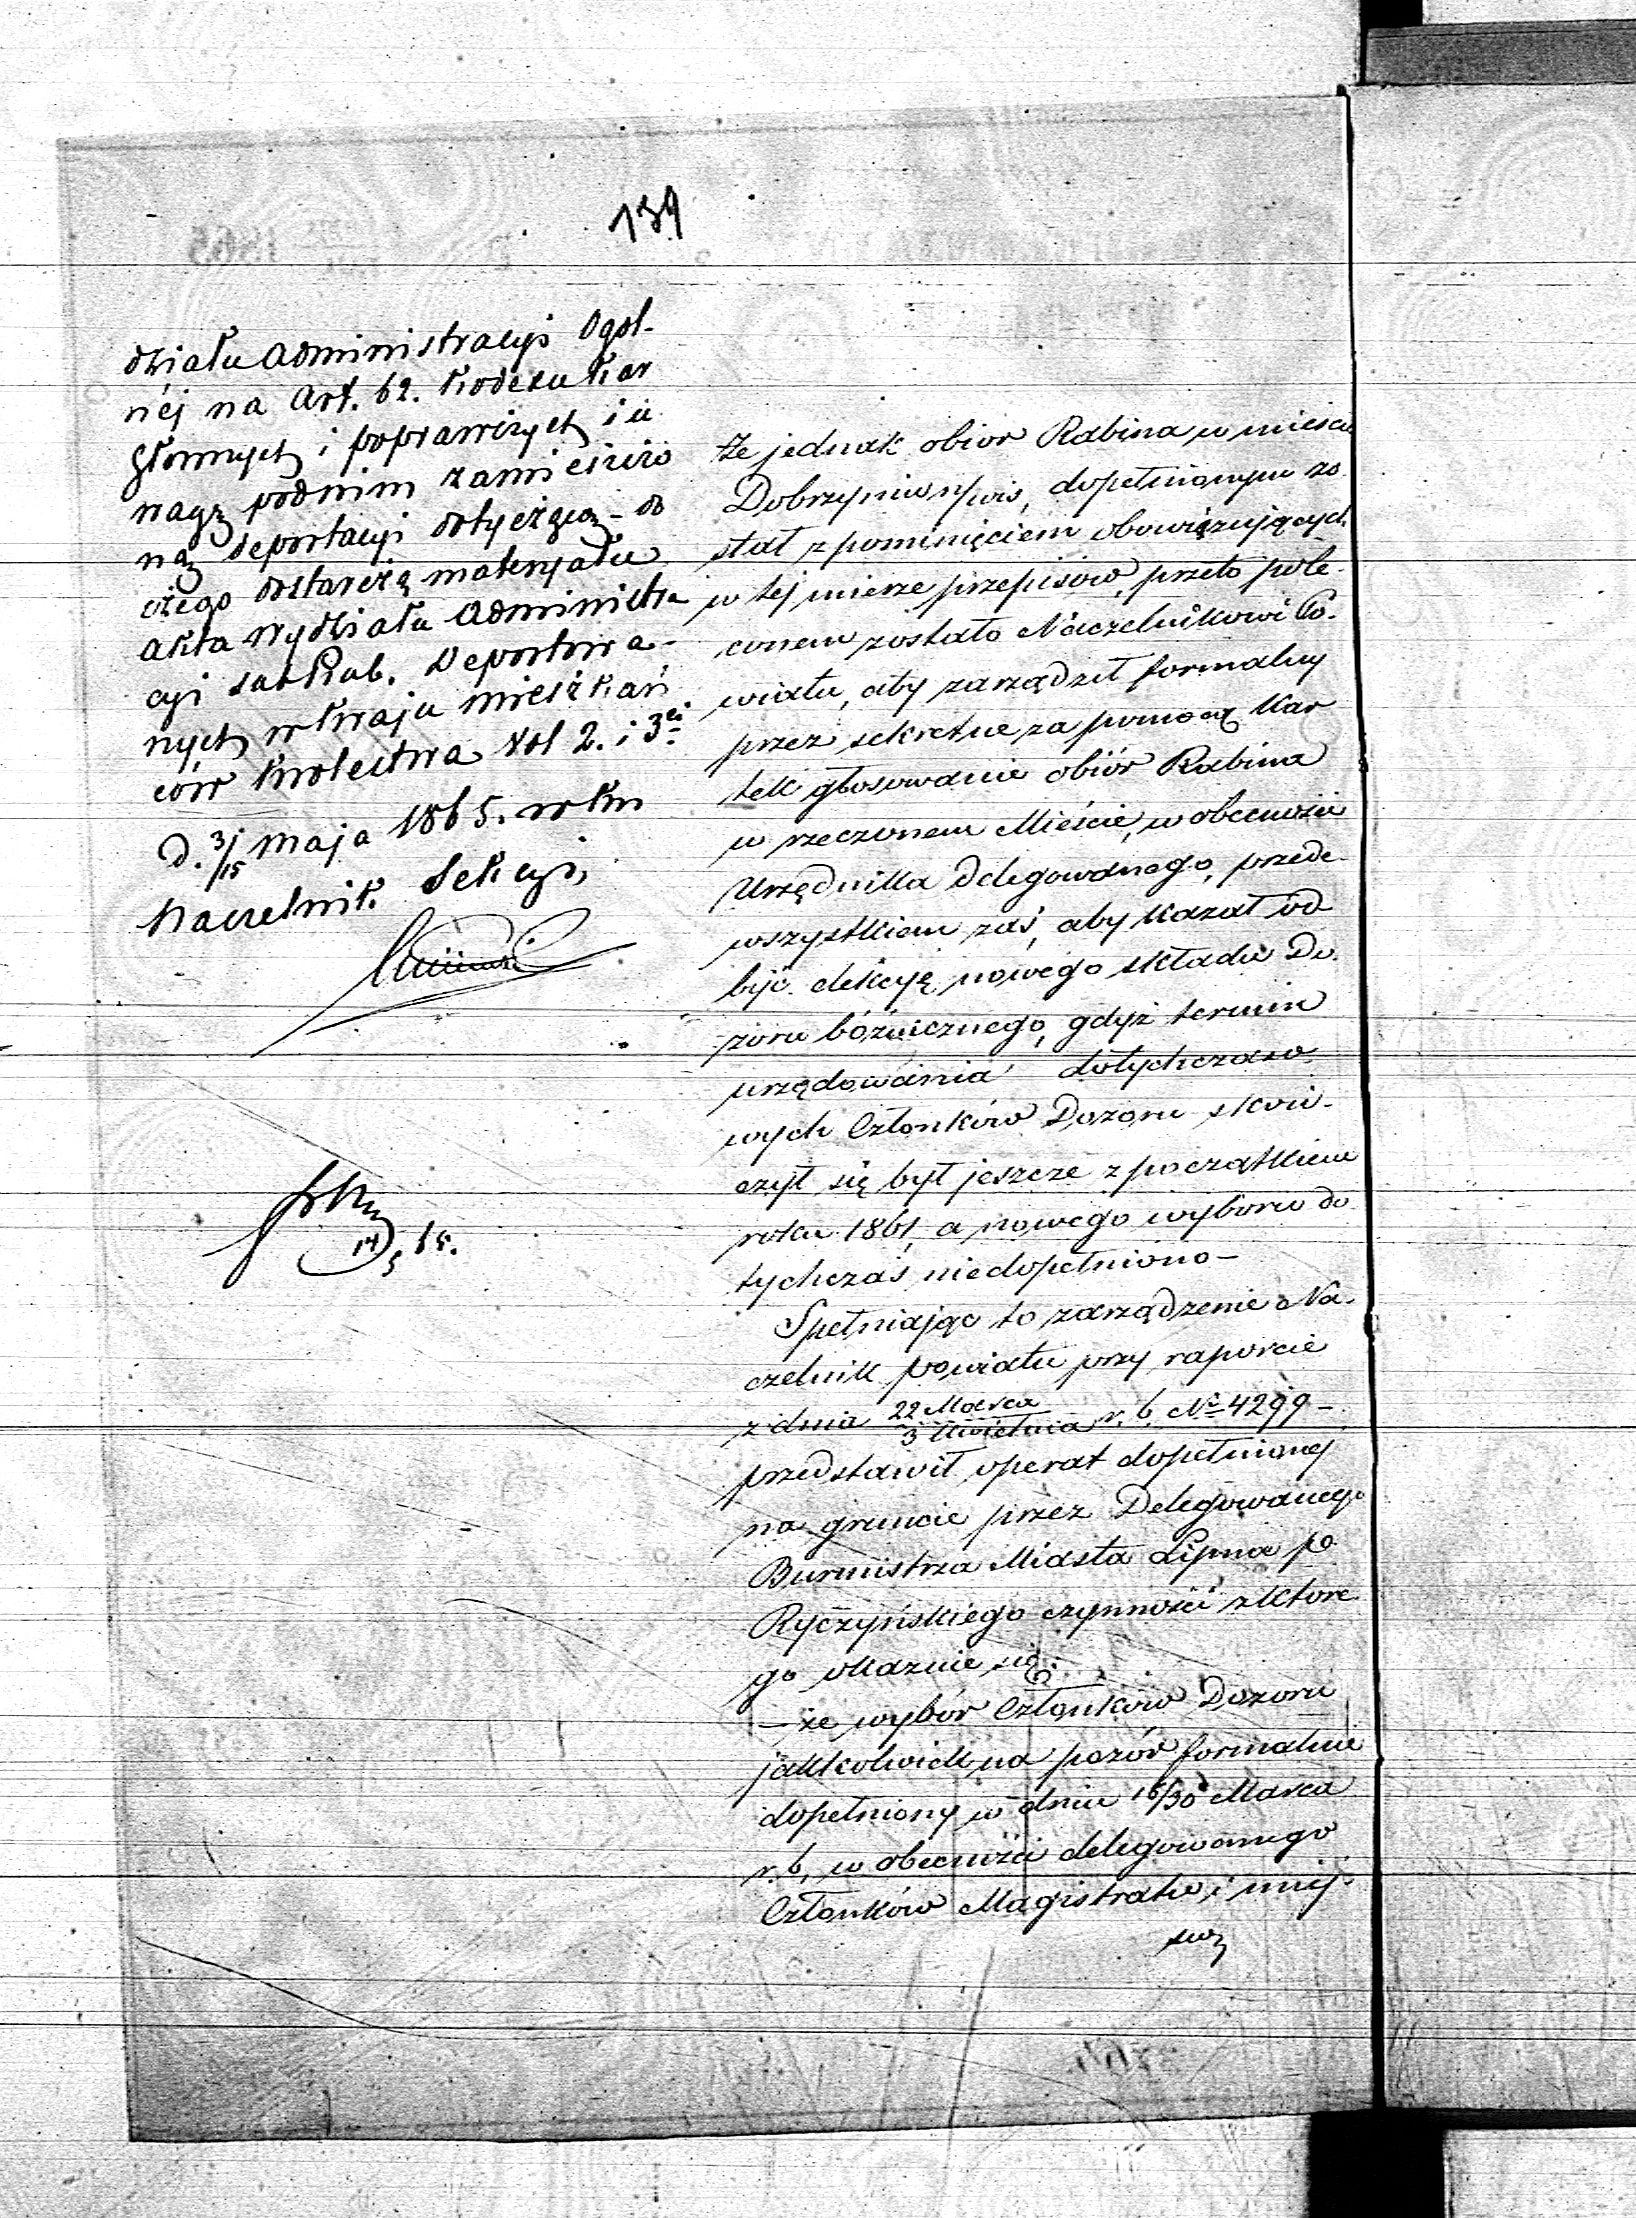 139
działu Administracyi Ogol-
nej na Art. 62. Kodexu Kar
głownych i poprawczych i u
wagę podnim zamieszczo
ną deportacyi dotyczącą - do
czego dostarczą materyału
akta Wydziału Administra
cyi Deportowa-
nych w kraju mieszkań
ców Krolestwa Vol 2. i 3ci
d. 3/15 Maja 1865. w Km
Naczelnik Sekcyi,
14/5 65.
że jednak obior Rabina w mieście
Dobrzyniu n/wis, dopełnionym zo
stał z pominięciem obowiązujących
w tej mierze przepisów, przeto pole-
conem zostało Naczelnikowi Po-
wiatu, aby zarządził formalny
przez sekretne za pomocą kar
tek głosowanie obiór Rabina
w rzeczonem Mieście, w obecności
Urzędnika Delegowanego, przede-
wszystkiem zaś, aby kazał od
być elekcyę nowego składu Do-
zoru bóźnicznego, gdyż termin
urzędowania dotychczaso-
wych Członków Dozoru skoń-
czył się był jeszcze z początkiem
roku 1861, a nowego wyboru do
tychczas niedopełniono -
Spełniając to zarządzenie Na-
czelnik powiatu przy raporcie
z dnia 22 Marca / 3 Kwietnia r. b. No 4299 -
przedstawił operat dopełnionej
na gruncie przez Delegowanego
Burmistrza Miasta Lipna p
Ryczyńskiego czynności z które-
go okazuie się:
- że wybór Członków Dozoru
jakkolwiek na pozór formalnie
dopełniony w dniu 18/30 Marca
r. b. w obecności delegowanego
Członków Magistratu i miej-